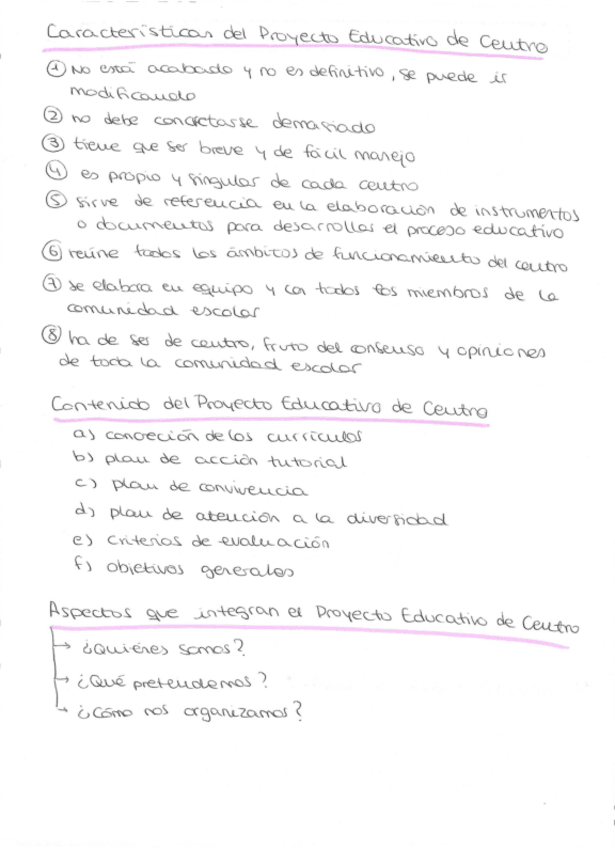 Características del Proyecto Educativo de Centro
① No está acabado y no es definitivo, se puede ir
modificando
② no debe concretarse demasiado
③ tiene que ser breve y de fácil manejo
④ es propio y singular de cada centro
⑤ sirve de referencia en la elaboración de instrumentos
o documentos para desarrollar el proceso educativo
⑥ reúne todos los ámbitos de funcionamiento del centro
⑦ se elabora en equipo y con todos los miembros de la
comunidad escolar
⑧ ha de ser de centro, fruto del consenso y opiniones
de toda la comunidad escolar
Contenido del Proyecto Educativo de Centro
a) conceción de los currículos
b) plan de acción tutorial
c) plan de convivencia
d) plan de atención a la diversidad
e) criterios de evaluación
f) objetivos generales
Aspectos que integran el Proyecto Educativo de Centro
→ ¿Quiénes somos?
→ ¿Qué pretendemos?
→ ¿Cómo nos organizamos?